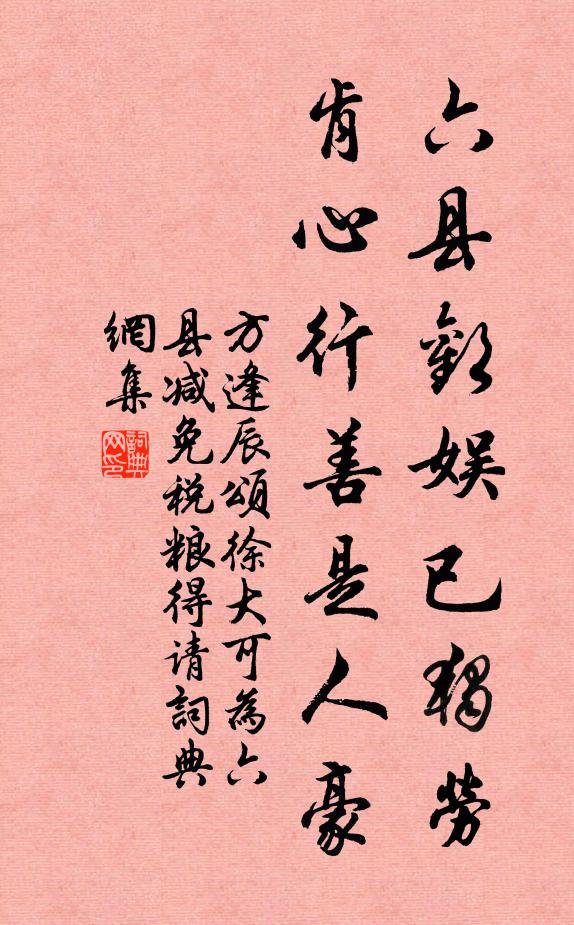 六县歡娱已獨勞
肯心行善是人豪
方逢辰頌徐大可為六
县减免税粮得请詞典
網集
詞典
网印